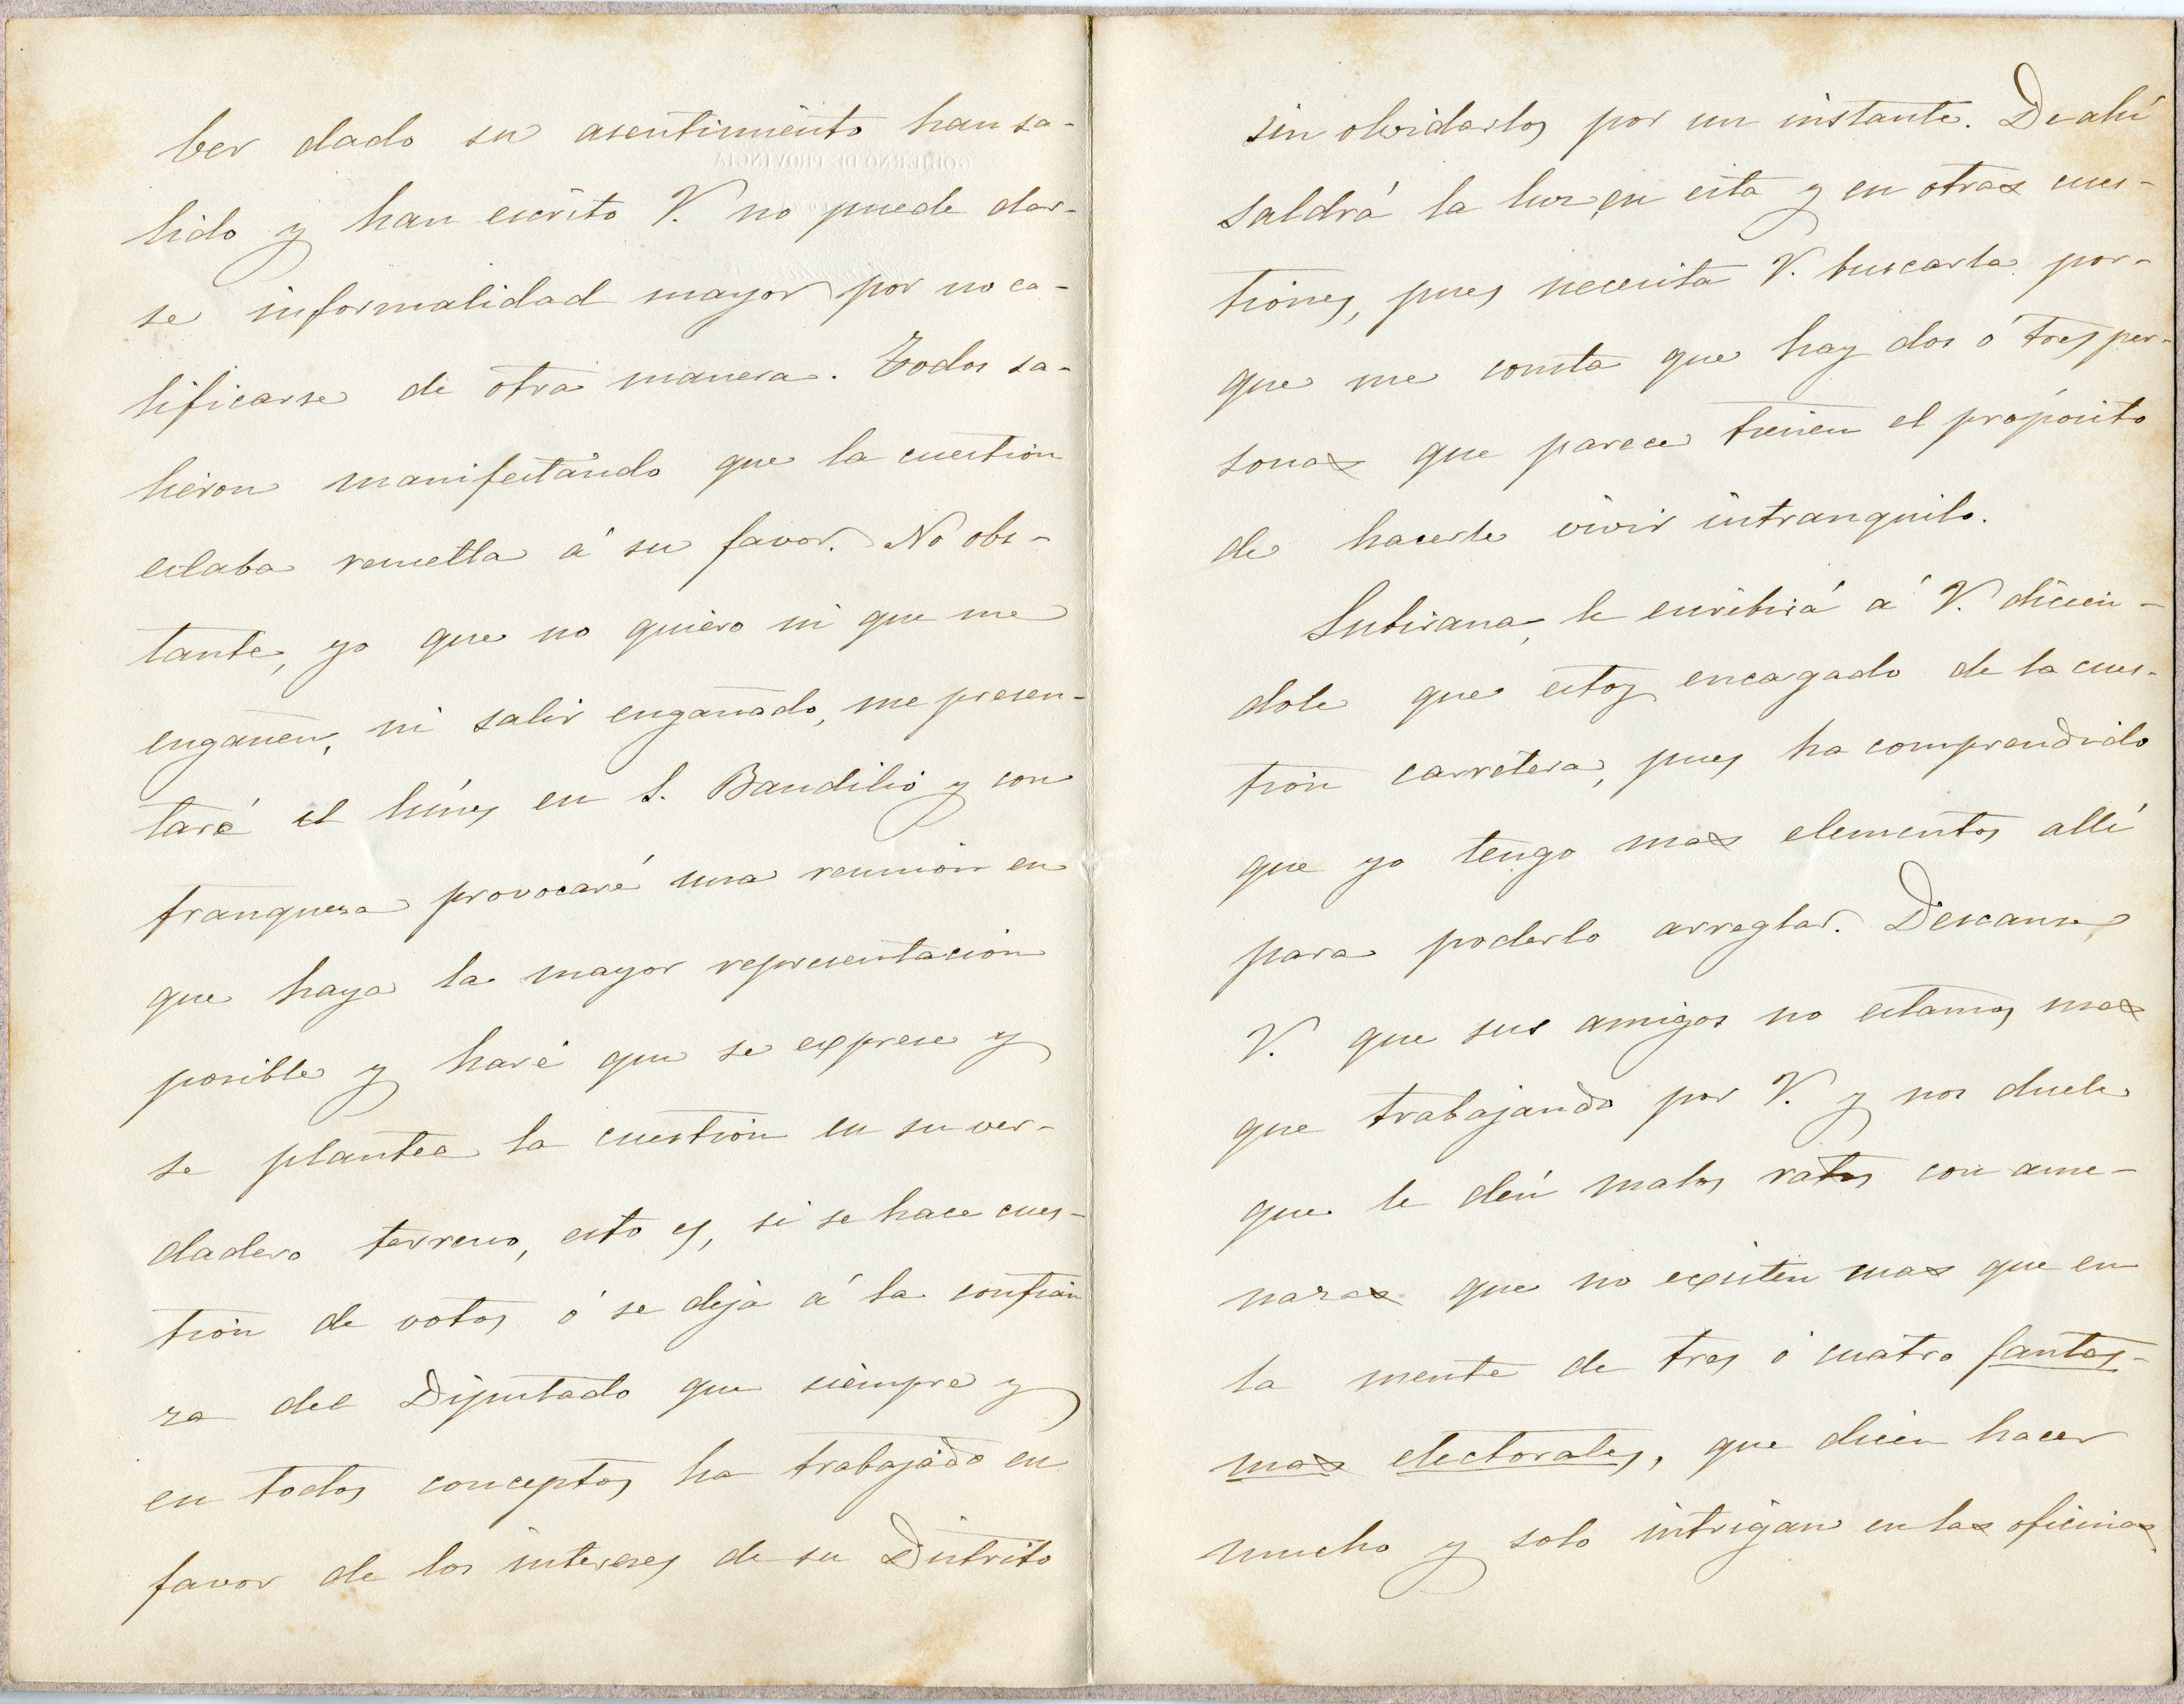 ber dado su asentimiento han sa-
lido y han escrito V. no puede dar-
se informalidad mayor por no ca-
lificarse de otra manera. Todos sa-
lieron manifestando que la cuestion
estaba resuelta á su favor. No obs-
tante, yo que no quiero ni que me
engañen, ni salir engañado, me presen-
taré el lúnes en S. Baudilio y con
franqueza provocaré una reunion en
que haya la mayor representacion
posible y haré que se exprese y
se plantee la cuestion en su ver-
dadero terreno, esto es, si se hace cues-
tion de votos ó se deja á la confian
za del Diputado que siempre y
en todos conceptos ha trabajado en
favor de los intereses de su Distrito
sin olvidarlos por un instante. De ahí
saldrá la luz en esta y en otras cues-
tiones, pues necesita V. buscarla por-
que me consta que hay dos ó tres per-
sonas que parece tienen el propósito
de hacerle vivir intranquilo.
Subirana, le escribirá á V. dicien-
dole que estoy encargado de la cues-
tion carretera, pues ha comprendido
que yo tengo mas elementos allí
para poderlo arreglar. Descanse
V. que sus amigos no estamos mas
que trabajando por V. y nos duele
que le dén malos ratos con ame-
nazas que no existen mas que en
la mente de tres ó cuatro fantas-
mas electorales, que dicen hacer
mucho y solo intrigan en las oficinas.
GOBIERNO DE PROVINCIA